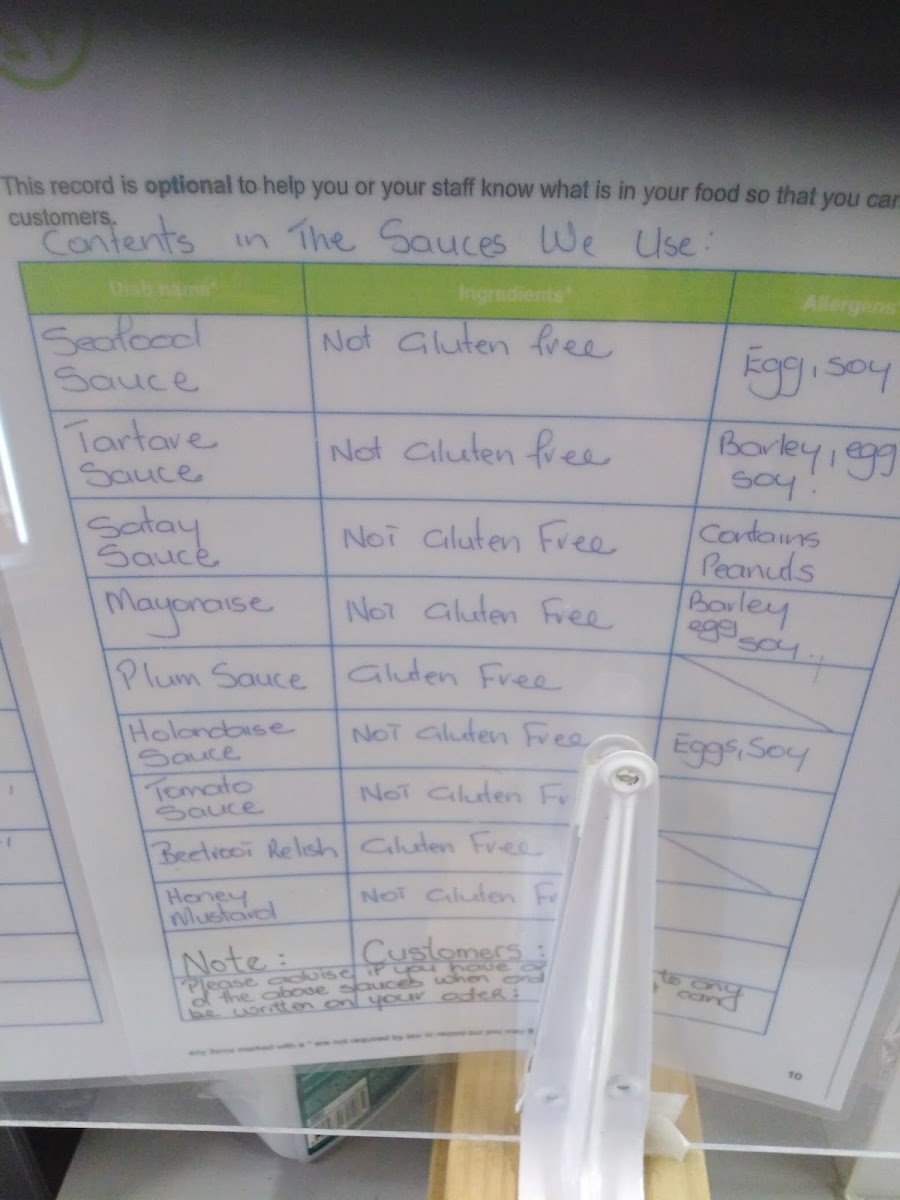 This record is optional to help you or your staff know what is in your food so that you can
customers.
Contents in The Sauces We Use:
Dish name* Ingredients* Allergens*
Seafood Sauce Not Gluten free Egg, soy
Tartare Sauce Not Gluten free Barley, egg soy.
Satay Sauce Not Gluten Free Contains Peanuts
Mayonaise Not Gluten Free Barley egg soy..
Plum Sauce Gluten Free
Holandaise Sauce Not Gluten Free Eggs, Soy
Tomato Sauce Not Gluten Fr
Beetroot Relish Gluten Free
Honey Mustard Not Gluten Fr
Note: Customers:
Please advise if you have to any
of the above sauces when card
be written on your oder:
Any items marked with a * are not required by law to record but you may
10